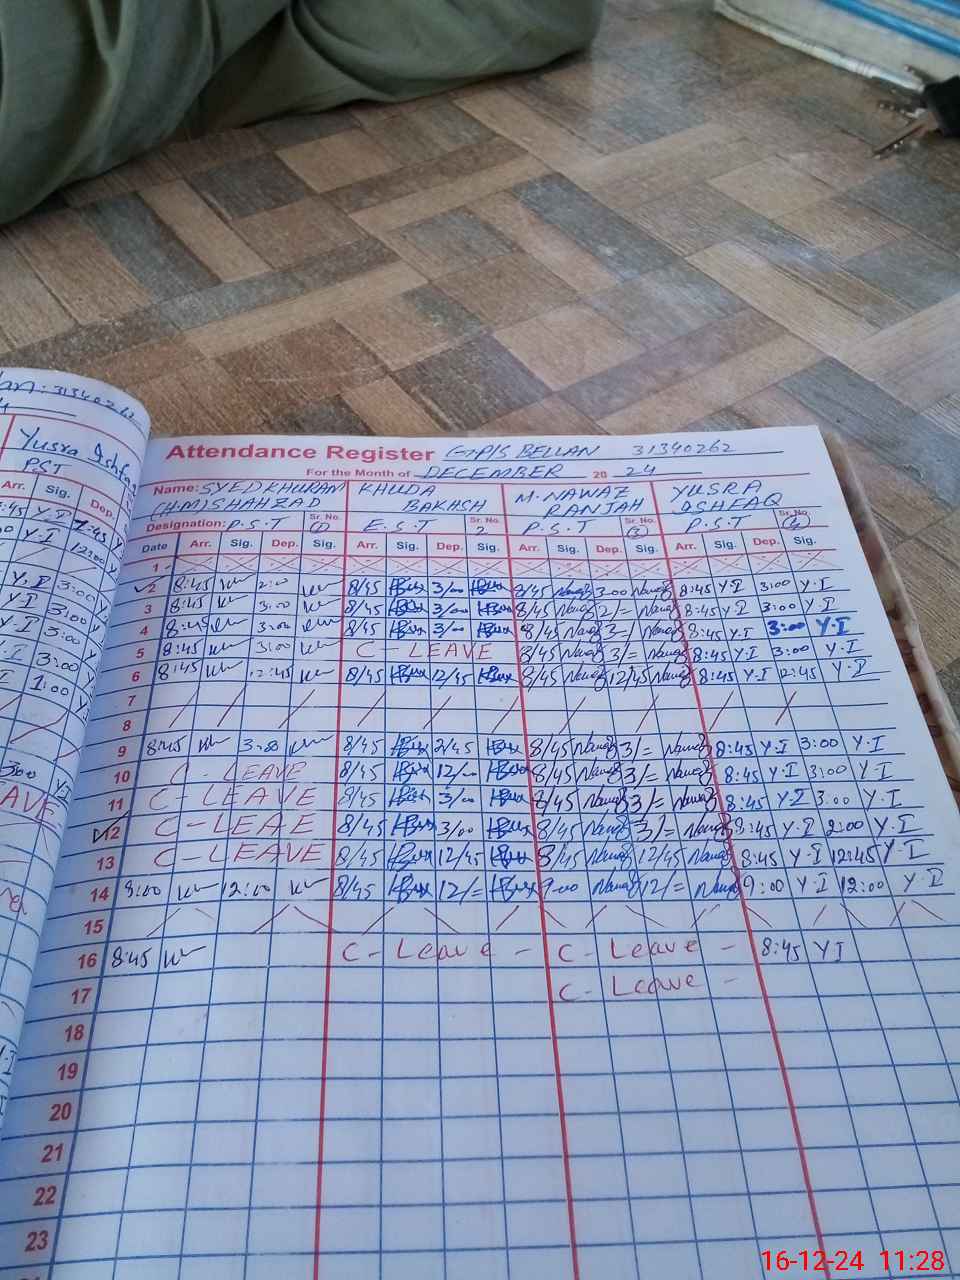 31340262
Yusra Ishfaq
PST
Arr. Sig. Dep.
Attendance Register G.P/S BELLAN 31340262
For the Month of DECEMBER 20 24
Name: SYED KHURAM KHUDA M. NAWAZ YUSRA
(H.M) SHAHZAD BAKHSH RANJAH ISHFAQ
Designation: P.S.T Sr. No. (1) E.S.T Sr. No. 2 P.S.T Sr. No. (3) P.S.T Sr. No. (4)
Date Arr. Sig. Dep. Sig. Arr. Sig. Dep. Sig. Arr. Sig. Dep. Sig. Arr. Sig. Dep. Sig.
1
2 8:45 2:00 8/45 3/00 8/45 Nawaz 3:00 Nawaz 8:45 Y.I 3:00 Y.I
3 8:45 3:00 8/45 3/00 8/45 Nawaz 2/= Nawaz 8:45 Y.I 3:00 Y.I
4 8:45 3:00 8/45 3/00 8/45 Nawaz 3=/ Nawaz 8:45 Y.I 3:00 Y.I
5 8:45 3:00 C - LEAVE 8/45 Nawaz 3/= Nawaz 8:45 Y.I 3:00 Y.I
6 8:45 12:45 8/45 12/45 8/45 Nawaz 12/45 Nawaz 8:45 Y.I 12:45 Y.I
7 / / / / / / / / / / /
8
9 8:45 3:00 8/45 2/45 8/45 Nawaz 3/= Nawaz 8:45 Y.I 3:00 Y.I
10 C - LEAVE 8/45 12/00 8/45 Nawaz 3/= Nawaz 8:45 Y.I 3:00 Y.I
11 C - LEAVE 8/45 3/00 8/45 Nawaz 3/= Nawaz 8:45 Y.I 3:00 Y.I
12 C - LEAE 8/45 3/00 8/45 Nawaz 3/= Nawaz 8:45 Y.I 2:00 Y.I
13 C - LEAVE 8/45 12/45 8/45 Nawaz 12/45 Nawaz 8:45 Y.I 12:45 Y.I
14 9:00 12:00 8/45 12/= 9:00 Nawaz 12/= Nawaz 9:00 Y.I 12:00 Y.I
15
16 8:45 C - Leave - C - Leave - 8:45 YI
17 C - Leave -
18
19
20
21
22
23
16-12-24 11:28